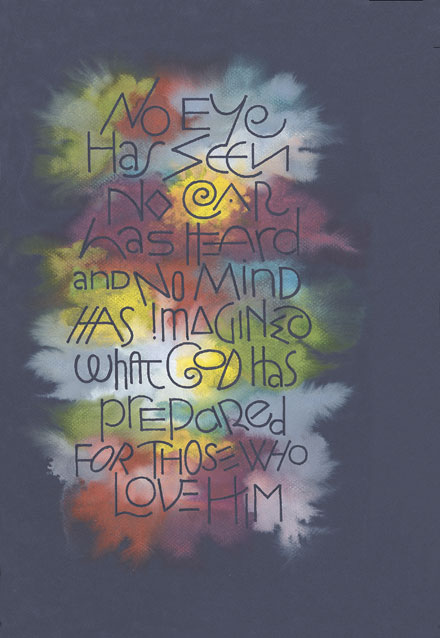 No Eye
Has Seen
No Ear
has Heard
and No Mind
Has Imagined
what God Has
prepared
for Those Who
Love Him